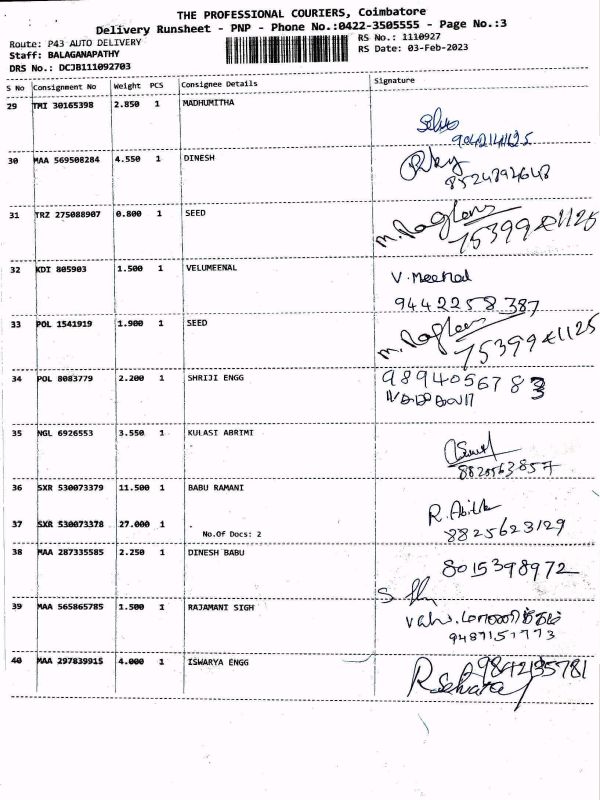 THE PROFESSIONAL COURIERS, Coimbatore
Delivery Runsheet - PNP - Phone No.:0422-3505555 - Page No.:3
Route: P43 AUTO DELIVERY
RS No.: 1110927
Staff: BALAGANAPATHY
RS Date: 03-Feb-2023
DRS No.: DCJB111092703
S No Consignment No Weight PCS Consignee Details Signature
29 TMI 30165398 2.850 1 MADHUMITHA
30 MAA 569508284 4.550 1 DINESH
8524892648
31 TRZ 275088907 0.800 1 SEED
32 KDI 805903 1.500 1 VELUMEENAL
V. Meenal
9442258387
33 POL 1541919 1.900 1 SEED
34 POL 8083779 2.200 1 SHRIJI ENGG
35 NGL 6926553 3.550 1 KULASI ABRIMI
8820563857
36 SXR 530073379 11.500 1 BABU RAMANI
37 SXR 530073378 27.000 1 .
No.Of Docs: 2
8825623129
38 MAA 287335585 2.250 1 DINESH BABU
8015398972
39 MAA 565865785 1.500 1 RAJAMANI SIGH
9487151773
40 MAA 297839915 4.000 1 ISWARYA ENGG
9842135781